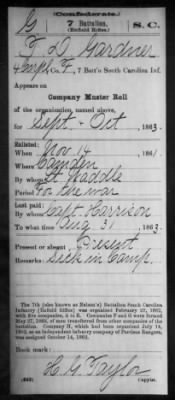 (Confederate.)
G 7 Battalion, S. C.
(Enfield Rifles.)
F. D. Gardner
4 Corpl, Co. F, 7 Batt'n South Carolina Inf.
Appears on
Company Muster Roll
of the organization named above,
for Sept - Oct, 1863.
Enlisted:
When Nov 14, 1861.
Where Camden
By whom
Period For the war
Last paid:
By whom Capt. Harrison
To what time Aug 31, 1863.
Present or absent Present
Remarks: Sick in Camp.
The 7th (also known as Nelson's) Battalion South Carolina
Infantry (Enfield Rifles) was organized February 22, 1862,
with five companies, A to E. Companies F and G were formed
May 27, 1862, of men transferred from other companies of the
battalion. Company H, which had been organized July 14,
1862, as an independent company of Partisan Rangers, was
assigned October 14, 1862.
Book mark:
(642) C. G. Taylor
Copyist.